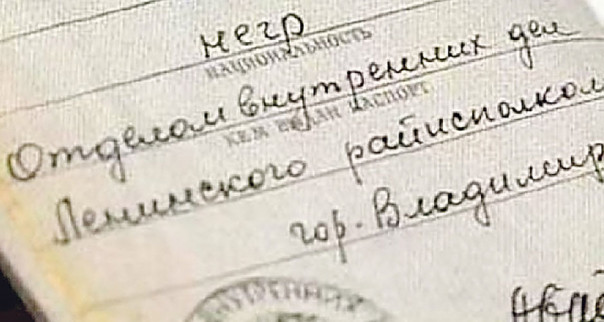 негр
НАЦИОНАЛЬНОСТЬ
Отделом внутренних дел
КЕМ ВЫДАН ПАСПОРТ
Ленинского райисполком
гор. Владимир
ВНУТРЕННИХ